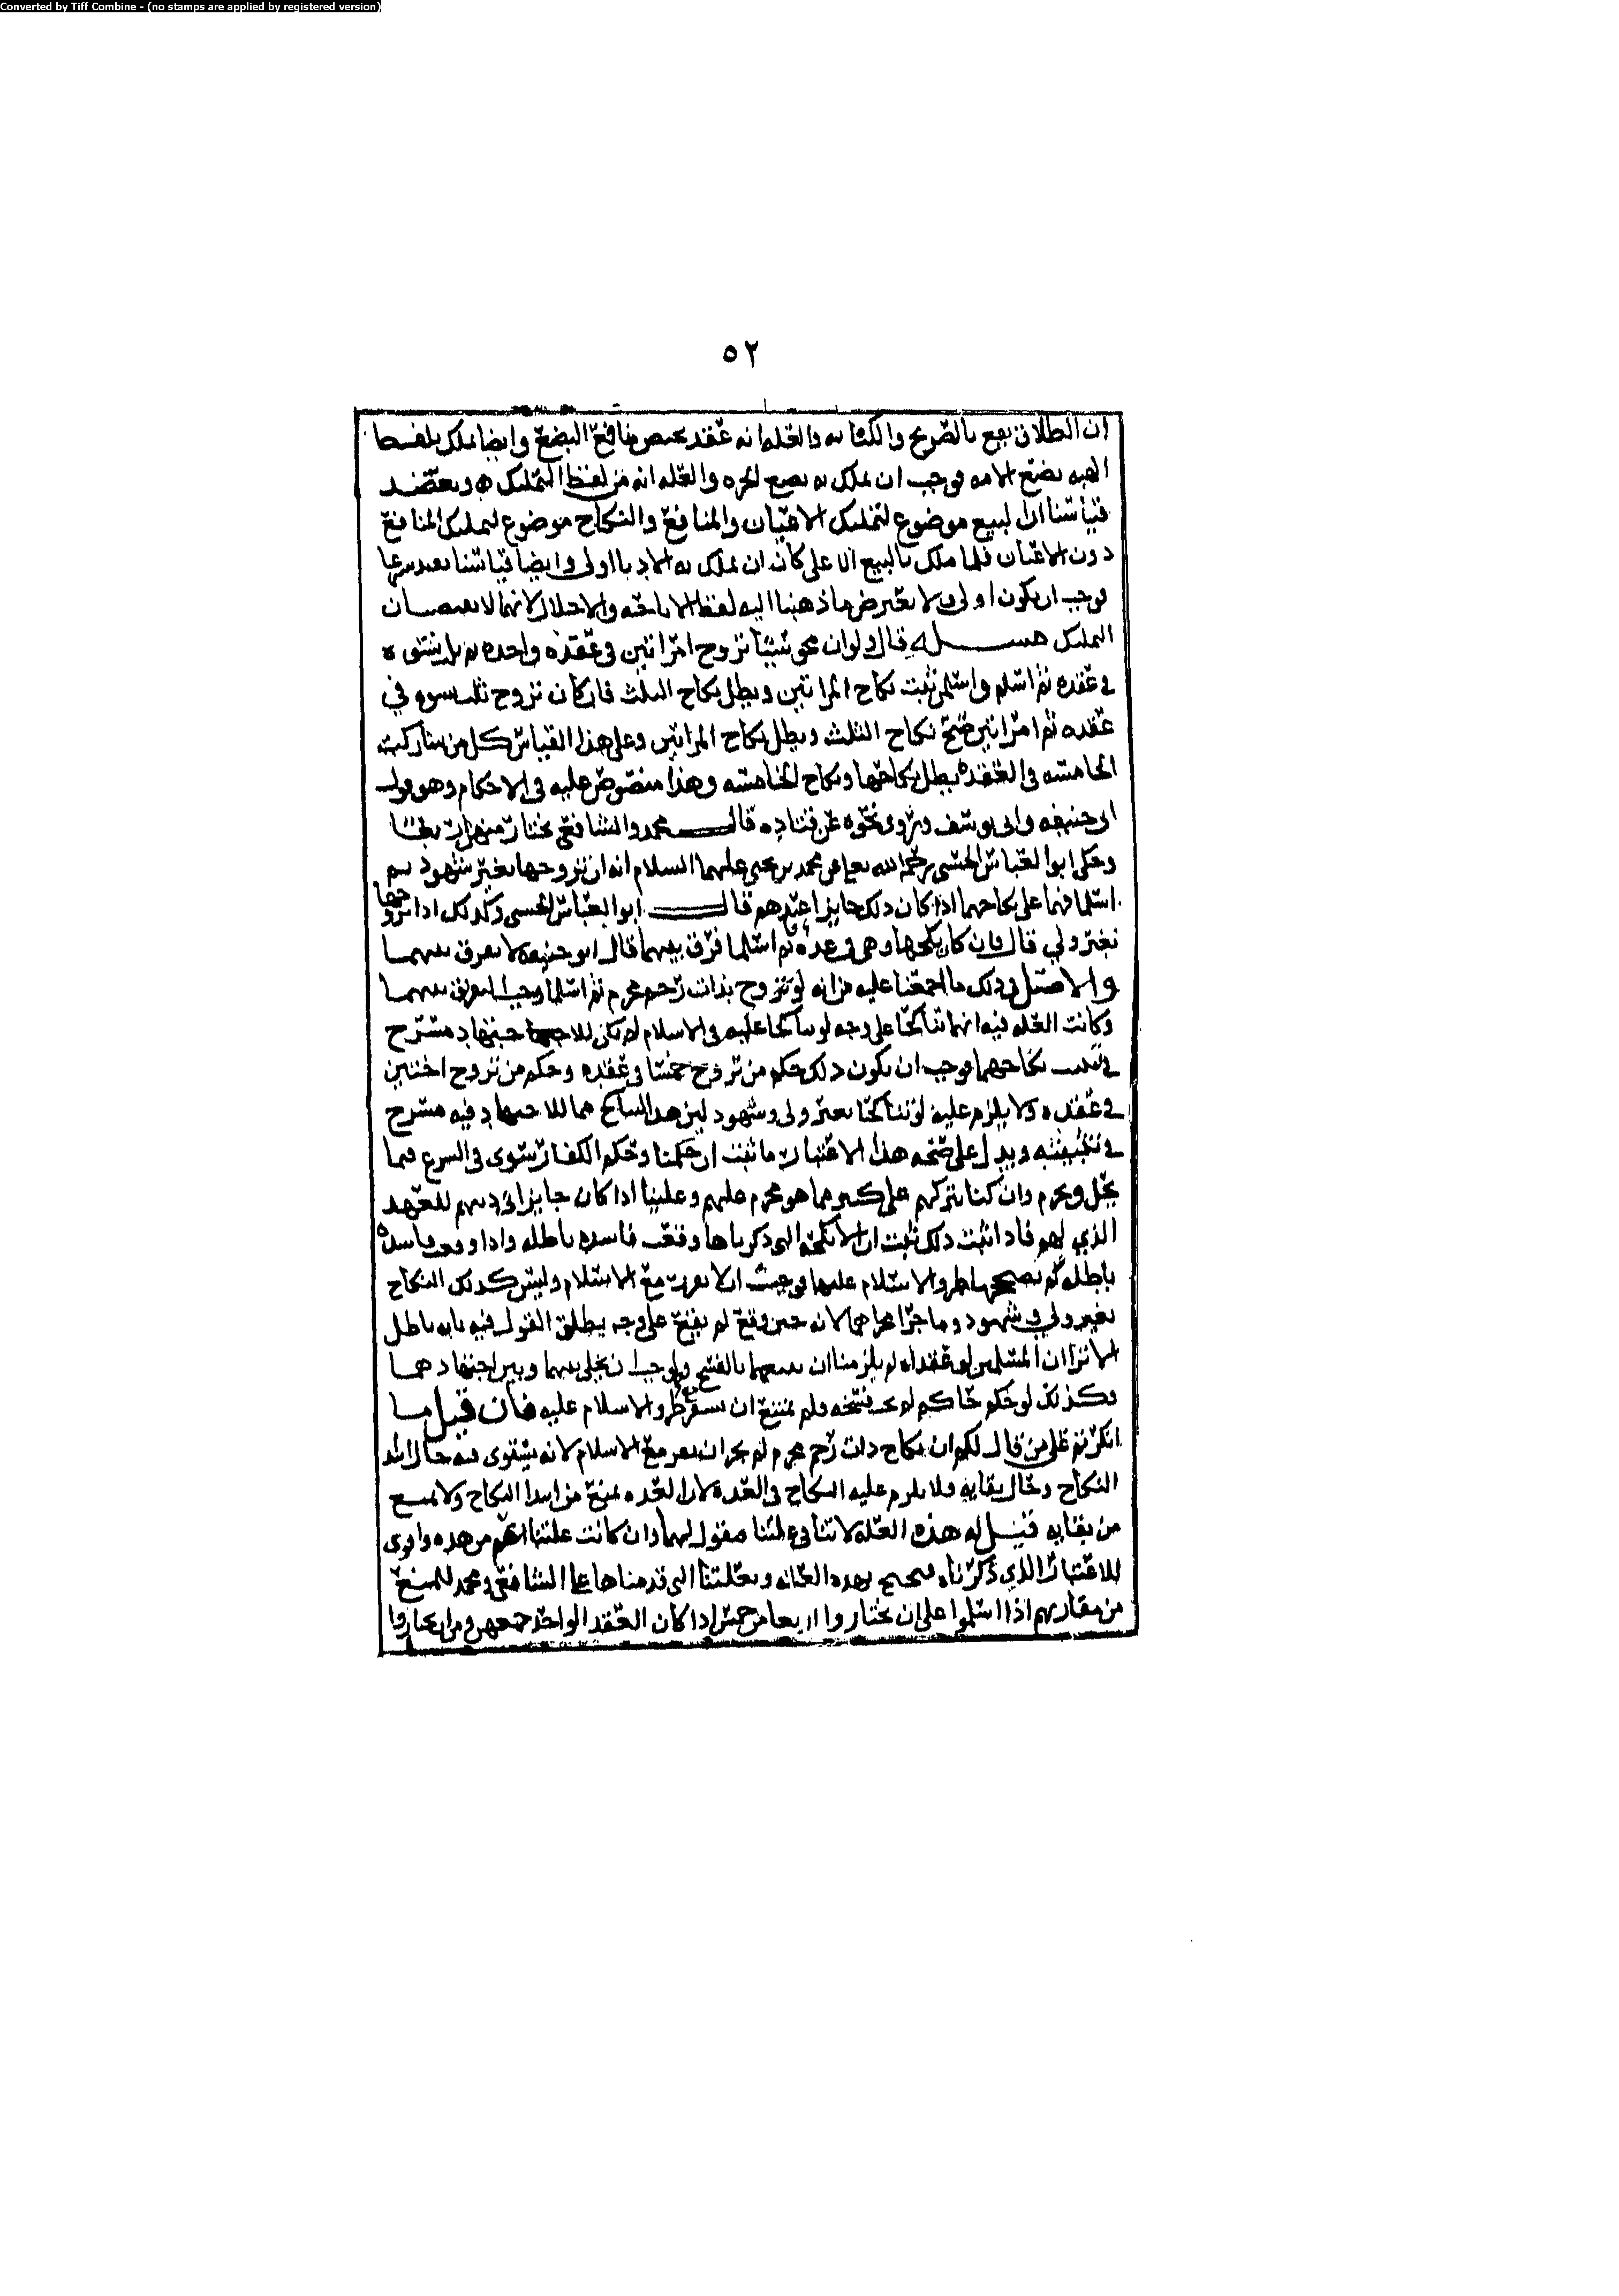 Converted by Tiff Combine - (no stamps are applied by registered version)
٥٢
ان الطلاق يقع بالصريح والكنايه والعله انه عقد يختص منافع البضع وايضا يملك بلفظ
الهبه بضع الامه فوجب ان يملك به بضع الحره والعله انه من لفظ التمليك ويعضد
قياسنا ان البيع موضوع لتمليك الاعيان والمنافع والنكاح موضوع لتمليك المنافع
دون الاعيان فلما ملك بالبيع الاعلى كان ان يملك به الادنى اولى وايضا قياسنا يفيد شرعا
فوجب ان يكون اولى ولا يعترض ما ذهبنا اليه لفظ الاباحه والاحلال لانهما لا يقتضيان
التمليك مسله قال ولو ان مجوسيا تزوج امراتين في عقده واحده ثم ثلاث نسوه
في عقده ثم اسلم واسلمن ثبت نكاح المراتين وبطل نكاح الثلث فان كان تزوج ثلث نسوه في
عقده ثم امراتين صح نكاح الثلث وبطل نكاح المراتين وعلى هذا القياس كل من شاركت
الخامسه في العقده بطل نكاحها ونكاح الخامسه وهذا منصوص عليه في الاحكام وهو قول
ابي حنيفه وابي يوسف وروي نحوه عن قتاده قال محمد والشافعي يختار منهن اربعا
وحكى ابو العباس الحسني رحمه الله تعالى عن محمد بن يحيى عليهما السلام انه ان تزوجها بغير شهود ثم
اسلما فهما على نكاحهما اذا كان ذلك جايزا عندهم قال ابو العباس الحسني وكذلك اذا تزوجها
بغير ولي قال فان كان نكحها وهي في عده ثم اسلما فرق بينهما قال ابو حنيفه لا يفرق بينهما
والاصل في ذلك ما اجمعنا عليه من انه لو تزوج بذات رحم محرم ثم اسلما وجب التفريق بينهما
وكانت العله فيه انهما تناكحا على وجه لو تناكحا عليه في الاسلام لم يكن للاجتهاد مسرح
في تثبيت نكاحهما فوجب ان يكون ذلك حكم من تزوج خمسا في عقده وحكم من تزوج اختين
في عقده ولا يلزم عليه لو تناكحا بغير ولي وشهود لان هذا التناكح مما للاجتهاد فيه مسرح
في تثبيته ويدل على صحه هذا الاعتبار ما ثبت ان حكمنا وحكم الكفار سوى في الشرع فيما
يحل ويحرم وان كنا نتركهم على كثير مما هو محرم عليهم وعلينا اذا كان جايزا في دينهم للعهد
الذي لهم فاذا ثبت ذلك ثبت ان الانكحه التي ذكرناها وقعت فاسده باطله واذا وقعت فاسده
باطله لم يصححها طرو الاسلام عليها فوجب ان لا تقر مع الاسلام وليس كذلك النكاح
بغير ولي وشهود وما جرا مجراهما لانه حين وقع لم يقع على وجه يطلق القول فيه بانه باطل
الا ترا ان المسلمين لو عقداه لم يلزمنا ان نمنعهما بالفسخ ولوجب ان نخلي بينهما وبين اجتهادهما
وكذلك لو حكم حاكم لم يجز فسخه فلم يمتنع ان يستقر مع طرو الاسلام عليه فان قيل ما
انكرتم على من قال لكم ان نكاح ذات رحم محرم لم يجز ان يقر مع الاسلام لانه يستوي فيه حال ابتدا
النكاح وحال بقايه ولا يلزم عليه النكاح في العده لان العده تمنع من ابتدا النكاح ولا تمنع
من بقايه قيل له هذه العله لا تنافي علتنا فنقول بهما وان كانت علتنا اعم من هذه واقوى
للاعتبار الذي ذكرناه فيحجج بهذه العله وبعلتنا التي قدمناها على الشافعي ومحمد للمنع
من مقارتهم اذا اسلموا على ان يختاروا اربعا من خمس اذا كان العقد الواحد جمعهن ومن ان يختاروا